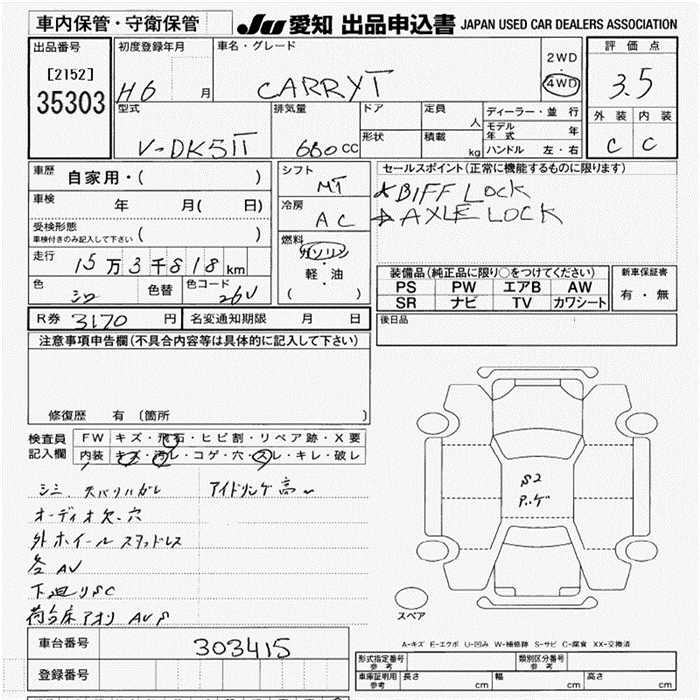 車内保管・守衛保管
JU 愛知 出品申込書 JAPAN USED CAR DEALERS ASSOCIATION
出品番号
[2152]
35303
初度登録年月
H6 月
車名・グレード
CARRY T
2WD
・
4WD
評価点
3.5
外装 内装
C C
型式
V-DK51T
排気量
660 cc
ドア
形状
定員
人
積載
kg
ディーラー・並行
モデル年式 年
ハンドル 左・右
車歴 自家用・( )
車検 年 月( 日)
受検形態
車検付きのみ記入して下さい ( )
走行 15万3千818km
色 シロ 色替 色コード 26U
シフト
MT
冷房
AC
燃料
ガソリン
・
軽・油
( )
セールスポイント(正常に機能するものに限ります)
BIFF LOCK
AXLE LOCK
装備品(純正品に限り○をつけてください)
PS PW エアB AW
SR ナビ TV カワシート
新車保証書
有・無
後日品
R券 3170 円 名変通知期限 月 日
注意事項申告欄(不具合内容等は具体的に記入して下さい)
修復歴 有 (箇所 )
検査員記入欄
FW キズ・飛石・ヒビ割・リペア跡・X要
内装 キズ・汚レ・コゲ・穴・スレ・キレ・破レ
シミ. 天バリハガレ アイドリング高い
オーディオ欠・穴
外ホイール スタッドレス
各AU
下廻りSC
荷台床アオリ AUS
S2
P.ゲ
スペア
A-キズ E-エクボ U-凹み W-補修跡 S-サビ C-腐食 XX-交換済
車台番号 303415
登録番号
形式指定番号 参考
類別区分番号 参考
車庫証明用 参考 長さ cm 幅 cm 高さ cm